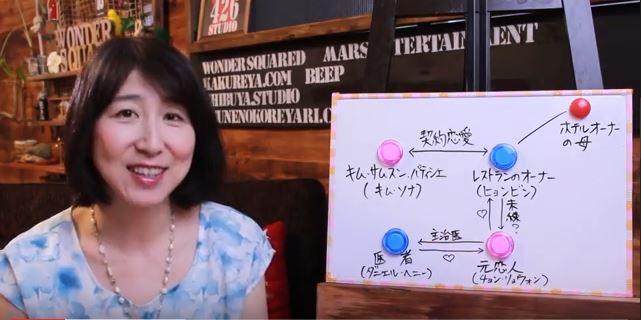 426
STUDIO
WONDER
SQUARED
WONDERSQUARED MARS ENTERTAINMENT
KAKUREYA.COM BEEP
SHIBUYA.STUDIO
TUNENOKOREYARI.C
ホテルオーナー
の母
契約恋愛
キム・サムスン、パティシエ
(キム・ソナ)
レストランのオーナー
(ヒョンビン)
未練?
主治医
医者
(ダニエル・ヘニー)
元恋人
(チョン・リョウォン)